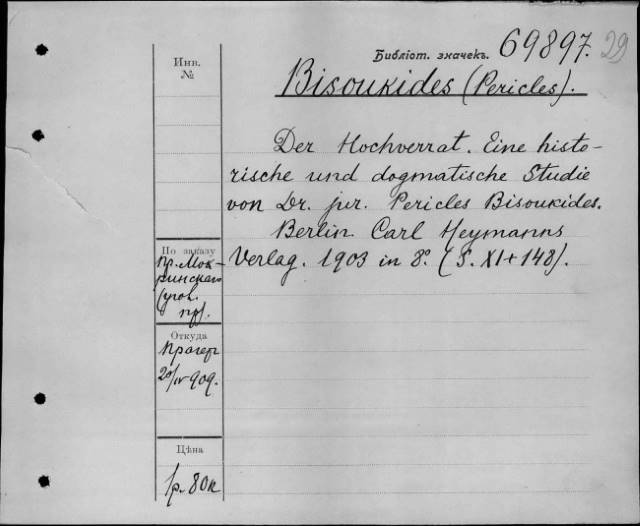 Библіот. значекъ. 69897. 29
Инв.
№
Bisoukides (Pericles).
Der Hochverrat. Eine histo-
rische und dogmatische Studie
von Dr. jur. Pericles Bisoukides.
Berlin Carl Heymanns
Verlag. 1903 in 8º. (S. XI+148).
По заказу
пр. Мок-
ринскаго
(угол.
пр).
Откуда
Прагер
20/IV 909.
Цѣна
1р. 80к